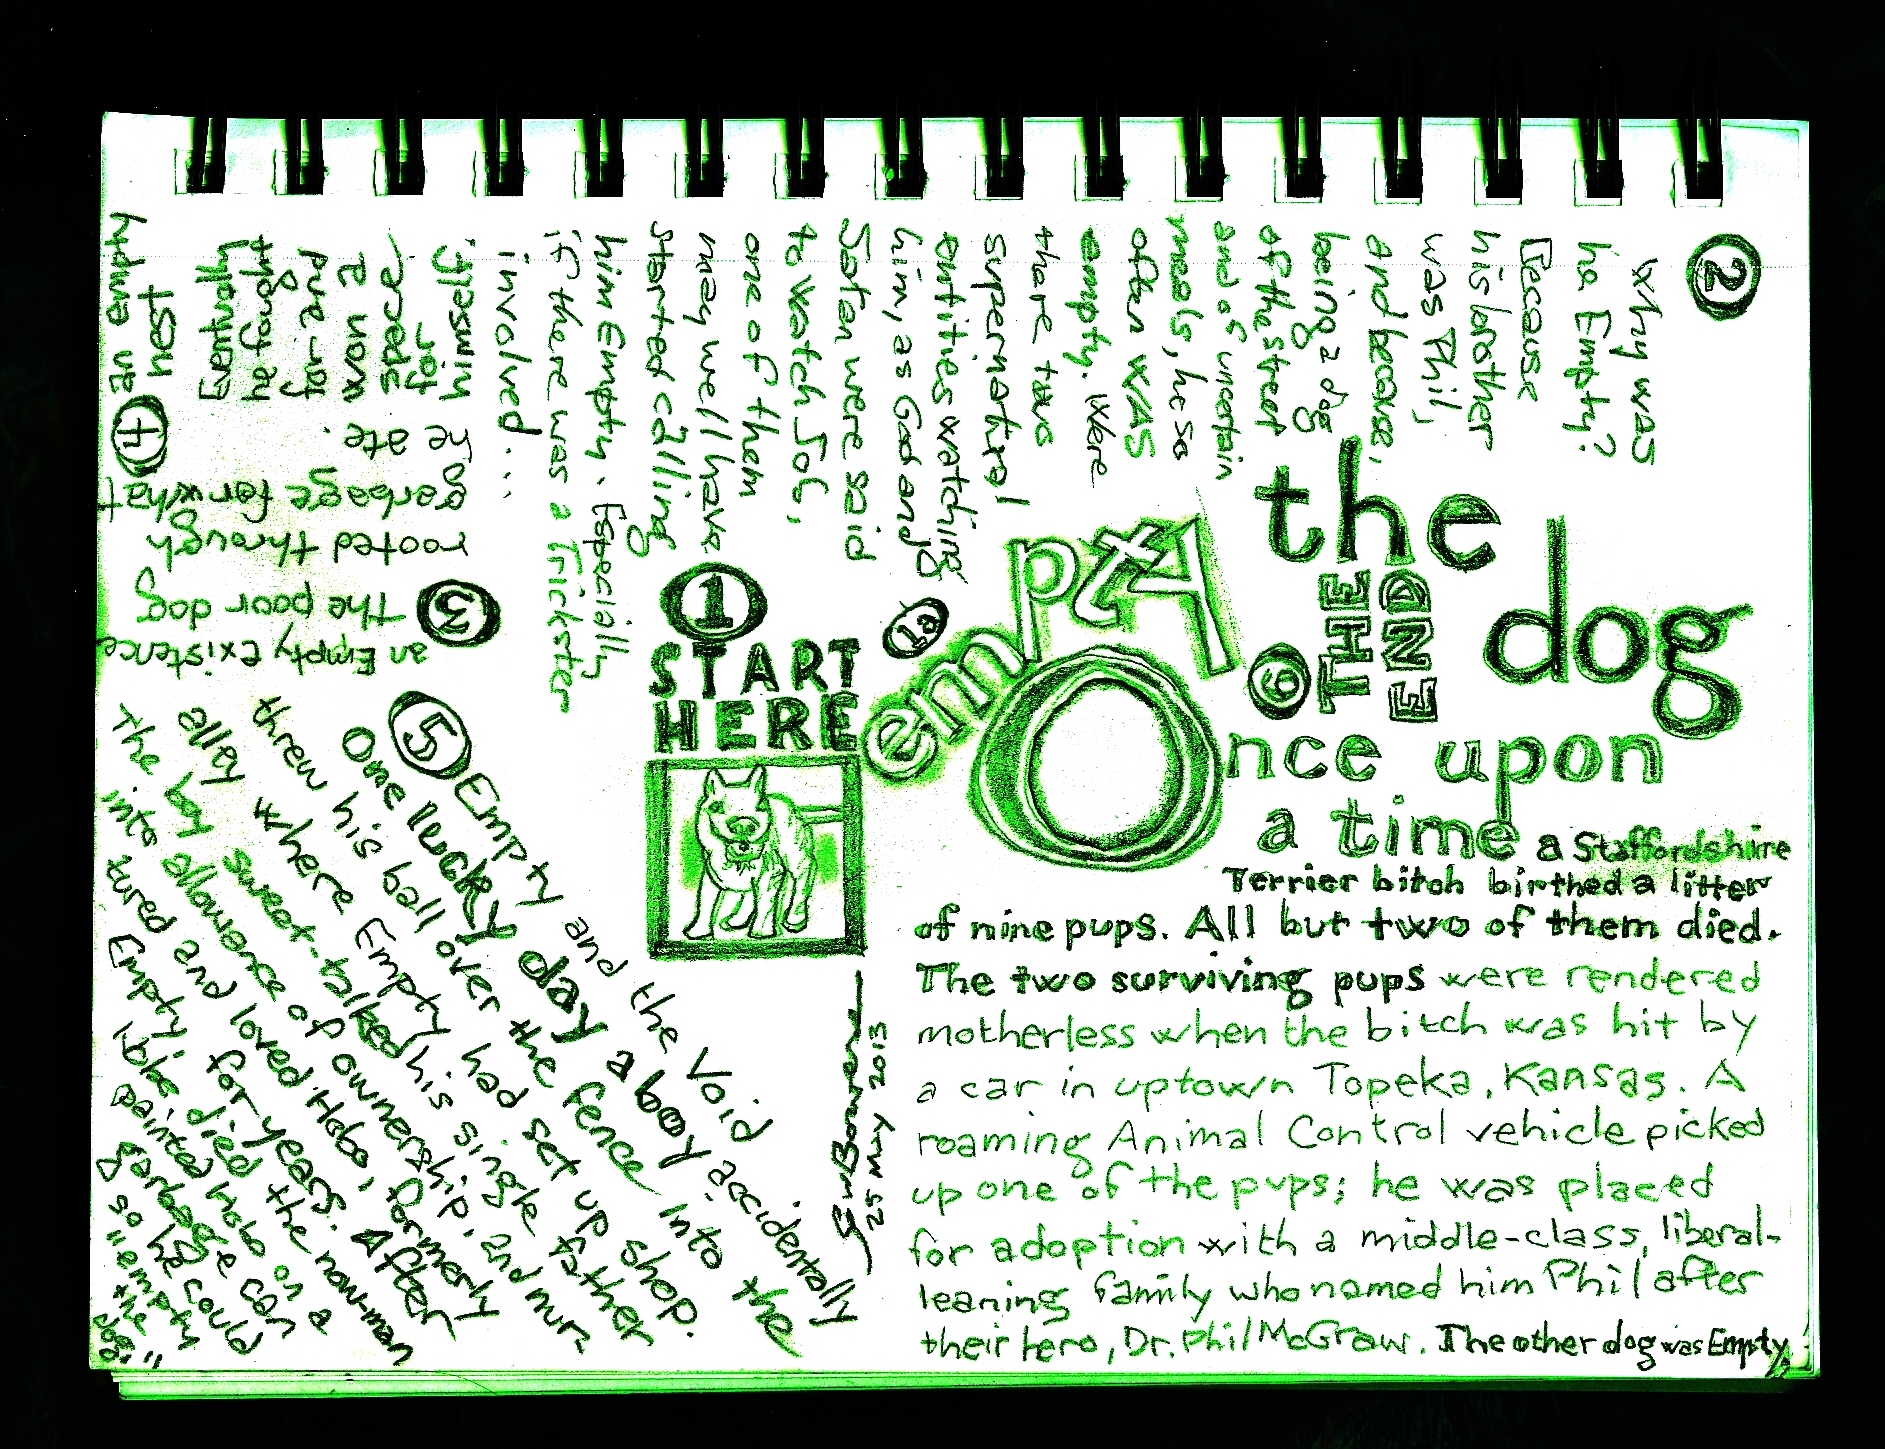 1
START
HERE
1a
empty
the
dog
Once upon
a time a Staffordshire
Terrier bitch birthed a litter
of nine pups. All but two of them died.
The two surviving pups were rendered
motherless when the bitch was hit by
a car in uptown Topeka, Kansas. A
roaming Animal Control vehicle picked
up one of the pups; he was placed
for adoption with a middle-class, liberal-
leaning family who named him Phil after
their hero, Dr. Phil McGraw. The other dog was Empty.
2
Why was
he Empty?
Because
his brother
was Phil,
and because,
being a dog
of the street
and of uncertain
meals, he so
often WAS
empty. Were
there two
supernatural
entities watching
him, as God and
Satan were said
to watch Job,
one of them
may well have
started calling
him Empty. Especially
if there was a Trickster
involved...
3
an Empty existence
The poor dog
rooted through
garbage for what
he ate.
4
an empty
nest
Eventually
thought he
pure-ing
won a
space
for
himself,
5
Empty and the Void
One lucky day a boy accidentally
threw his ball over the fence into the
alley where Empty had set up shop.
The boy sweet-talked his single father
into allowance of ownership, and nur-
tured and loved Hobo, formerly
Empty, for years. After
Hobo died the now-man
painted Hobo on a
garbage can
so he could
"empty
the
dog."
6
THE
END
25 May 2013